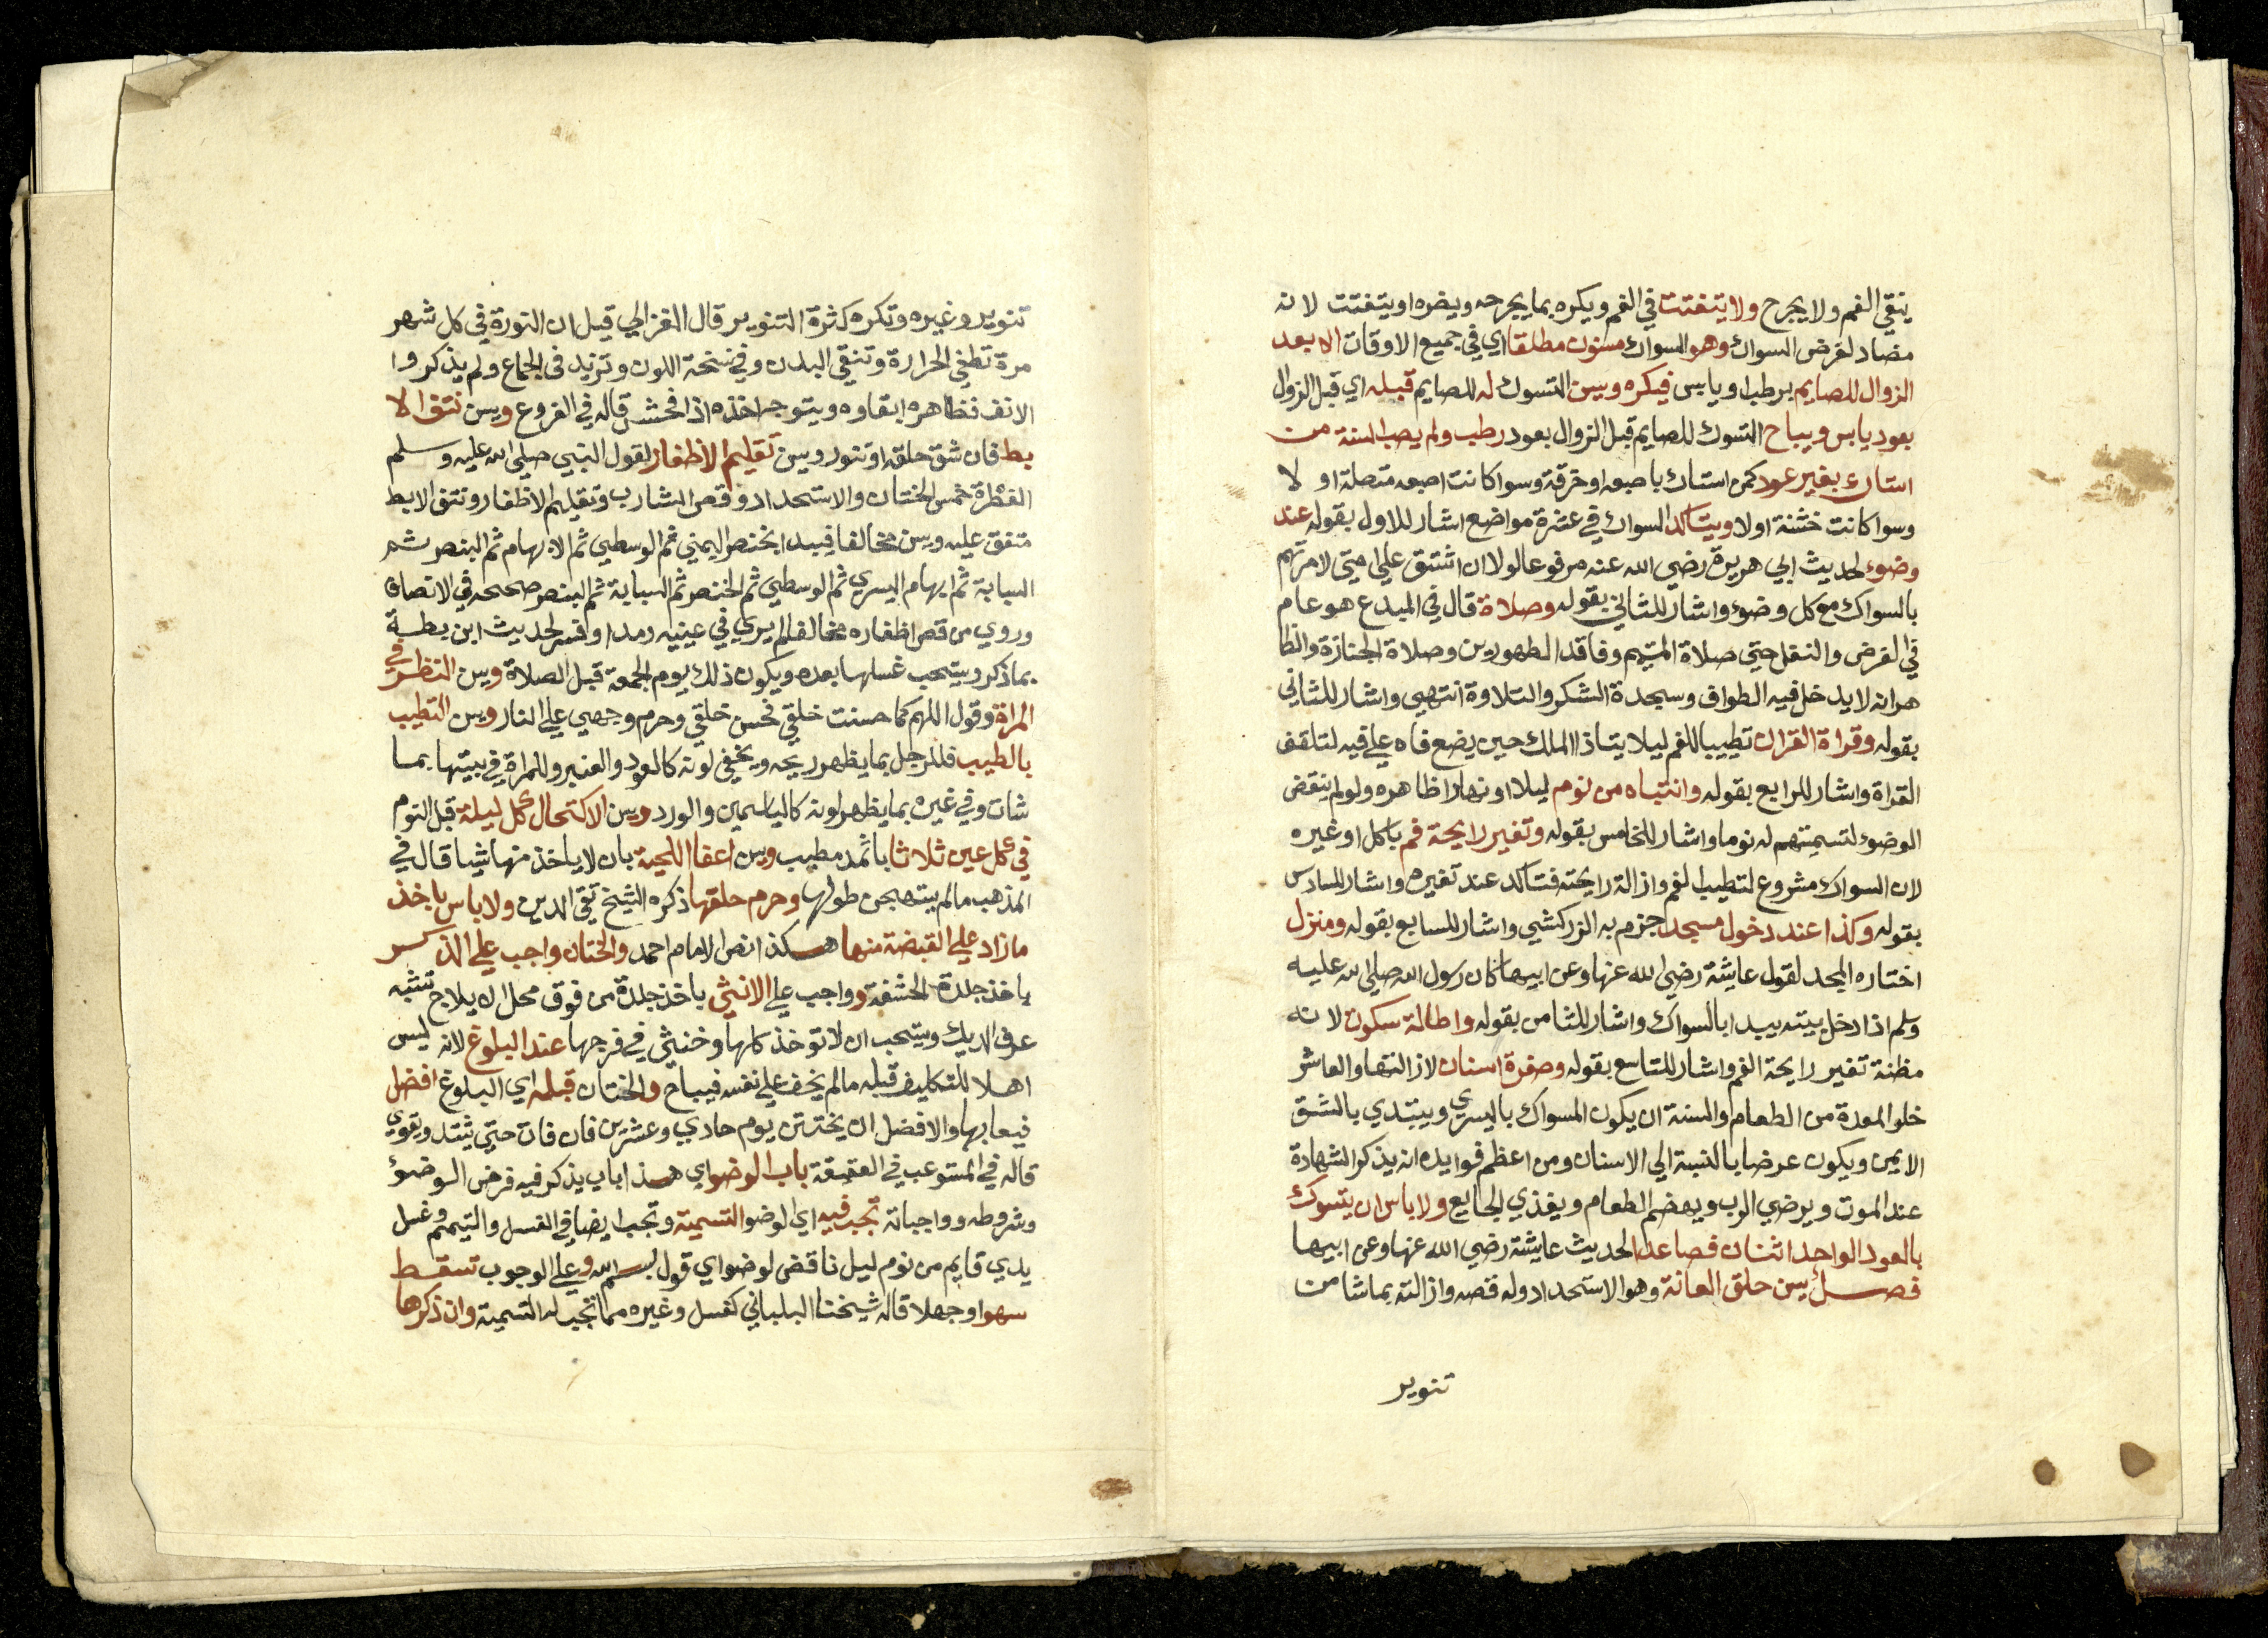 ينقي الفم ولا يجرح ولا يتفتت في الفم ويكره بما يجرحه ويضره او يتفتت لانه
مضاد لغرض السواك وهو السواك مسنون مطلقا اي في جميع الاوقات الا بعد
الزوال للصايم برطب او يابس فيكره ويسن التسوك له للصايم قبله اي قبل الزوال
بعود يابس ويباح التسوك للصايم قبل الزوال بعود رطب ولم يصب السنة من
استاك بغير عود كمن استاك باصبعه او خرقة وسوا كانت اصبعه متصلة او لا
وسوا كانت خشنة اولا ويتاكد السواك في عشرة مواضع اشار للاول بقوله عند
وضوء لحديث ابي هريرة رضي الله عنه مرفوعا لولا ان اشق علي امتي لامرتهم
بالسواك مع كل وضوء واشار للثاني بقوله وصلاة قال في المبدع هو عام
في الفرض والنفل حتي صلاة المتيمم وفاقد الطهورين وصلاة الجنازة والظا
هر انه لا يدخل فيه الطواف وسجدة الشكر والتلاوة انتهي واشار للثاني
بقوله وقراة القران تطييبا للفم ليلا يتاذا الملك حين يضع فاه علي فيه لتلقف
القراة واشار للرابع بقوله وانتباه من نوم ليلا او نهارا ظاهره ولو لم ينقض
الوضوء لتسميتهم له نوما واشار للخامس بقوله وتغير رايحة فم باكل او غيره
لان السواك مشروع لتطييب الفم وازالة رايحته فتاكد عند تغيره واشار للسادس
بقوله وكذا عند دخول مسجد جزم به الزركشي واشار للسابع بقوله ومنزل
اختاره المجد لقول عايشة رضي الله عنها وعن ابيها كان رسول الله صلي الله عليه
وسلم اذا دخل بيته يبدا بالسواك واشار للثامن بقوله واطالة سكوت لانه
مظنة تغير رايحة الفم واشار للتاسع بقوله وصفرة اسنان لازالتها والعاشر
خلو المعدة من الطعام والسنة ان يكون المسواك باليسري ويبتدي بالشق
الايمن ويكون عرضا بالنسبة الي الاسنان ومن اعظم فوايده انه يذكر الشهادة
عند الموت ويرضي الرب ويهضم الطعام ويغذي الجايع ولا باس ان يتسوك
بالعود الواحد اثنان فصاعدا لحديث عايشة رضي الله عنها وعن ابيها
فصل يسن حلق العانة وهو الاستحداد وله قصه وازالته بما شا من
تنوير
تنوير وغيره وتكره كثرة التنوير قال الغزالي قيل ان النورة في كل شهر
مرة تطفي الحرارة وتنقي البدن وفي نسخة اللون وتزيد في الجماع ولم يذكروا
الانف فظاهره ابقاوه ويتوجه اخذه اذا فحش قاله في الفروع ويسن نتف الا
بط فان شق حلقه او تنور ويسن تقليم الاظفار لقول النبي صلي الله عليه وسلم
الفطرة خمس الختان والاستحداد وقص الشارب وتقليم الاظفار ونتف الابط
متفق عليه ويسن مخالفا فيبدا بخنصر اليمني ثم الوسطي ثم الابهام ثم البنصر ثم
السبابة ثم ابهام اليسري ثم الوسطي ثم الخنصر ثم السبابة ثم البنصر صححه في الانصاف
وروي من قص اظفاره مخالفا لم يري في عينيه رمدا وفسر لحديث ابن بطة
بما ذكر ويستحب غسلها بعده ويكون ذلك يوم الجمعة قبل الصلاة ويسن النظر في
المراة وقول اللهم كما حسنت خلقي فحسن خلقي وحرم وجهي علي النار ويسن التطيب
بالطيب فللرجل بما يظهر ريحه ويخفي لونه كالعود والعنبر وللمراة في بيتها بما
شات وفي غيره بما يظهر لونه كالياسمين والورد ويسن الاكتحال كل ليلة قبل النوم
في كل عين ثلاثا باثمد مطيب ويسن اعفا اللحية بان لا ياخذ منها شيا قال في
المذهب ما لم يستهجن طولها وحرم حلقها ذكره الشيخ تقي الدين ولا باس باخذ
ما زاد علي القبضة منها هكذا نص الامام احمد والختان واجب علي الذكر
باخذ جلدة الحشفة وواجب علي الانثي باخذ جلدة من فوق محل الايلاج تشبه
عرف الديك ويستحب ان لا توخذ كلها وخنثي في فرجها عند البلوغ لانه ليس
اهلا للتكليف قبله ما لم يخف علي نفسه فيباح والختان قبله اي البلوغ افضل
فيعابها والافضل ان يختتن يوم حادي وعشرين فان فات حتي يشتد ويقوي
قاله في المستوعب في العقيقة باب الوضو اي هذا باب يذكر فيه فرض الوضوء
وشروطه وواجباته تجب فيه اي الوضو التسمية وتجب ايضا في الغسل والتيمم وغسل
يدي قايم من نوم ليل ناقض لوضو اي قول بسم الله وعلي الوجوب تسقط
سهوا وجهلا قاله شيخنا البلباني كغسل وغيره مما تجب له التسمية وان ذكرها